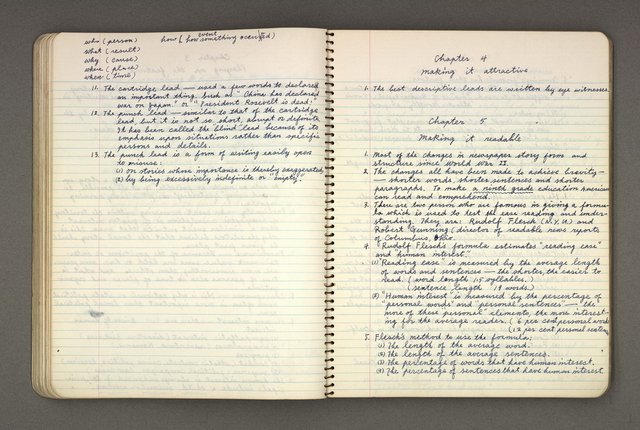 who (person) how (how something occurred)
event
what (result)
why (cause)
where (place)
when (time)
11. The cartridge lead — used a few words to declared
an important thing. Such as "China has declared
war on Japan." or "President Rosevelt is dead."
12. The punch lead — similar to that of the cartridge
lead, but it is not so short, abrupt or definite.
It has been called the blind lead because of its
emphasis upon situations rather than specific
persons and details.
13. The punch lead is a form of writing easily open
to misuse:
(1) on stories whose importance is thereby exaggerated,
(2) by being excessively indefinite or "empty".
Chapter 4
Making it attractive
1. The best descriptive leads are written by eye witnesses.
Chapter 5
Making it readable
1. Most of the changes in newspaper story form and
structure since World War II.
2. The changes all have been made to achieve brevity —
— shorter words, shorter sentences and shorter
paragraphs. To make a ninth grade education American
can read and comprehend.
3. There are two person who are famous in giving a formu-
la which is used to test the ease reading and under-
standing. They are: Rudolf Flesch (N.Y.U.) and
Robert Gunning (director of readable news reports
of Columbus, Ohio.
4. "Rudolf Flesch's formula estimates "reading ease"
and human interest."
(1) "Reading ease" is measured by the average length
of words and sentences — the shorter, the easier to
read. (word length 1.5 syllables.)
(sentence length 19 words.)
(2) "Human interest" is measured by the percentage of
"personal words" and "personal sentences" — "the
more of these personal" elements, the more interest-
ing for the average reader. (6 per cent personal words
(12 per cent personal sentences
5. Flesch's method to use the formula:
(1) The length of the average word.
(2) The length of the average sentences.
(3) The percentage of words that have human interest.
(4) The percentage of sentences that have human interest.